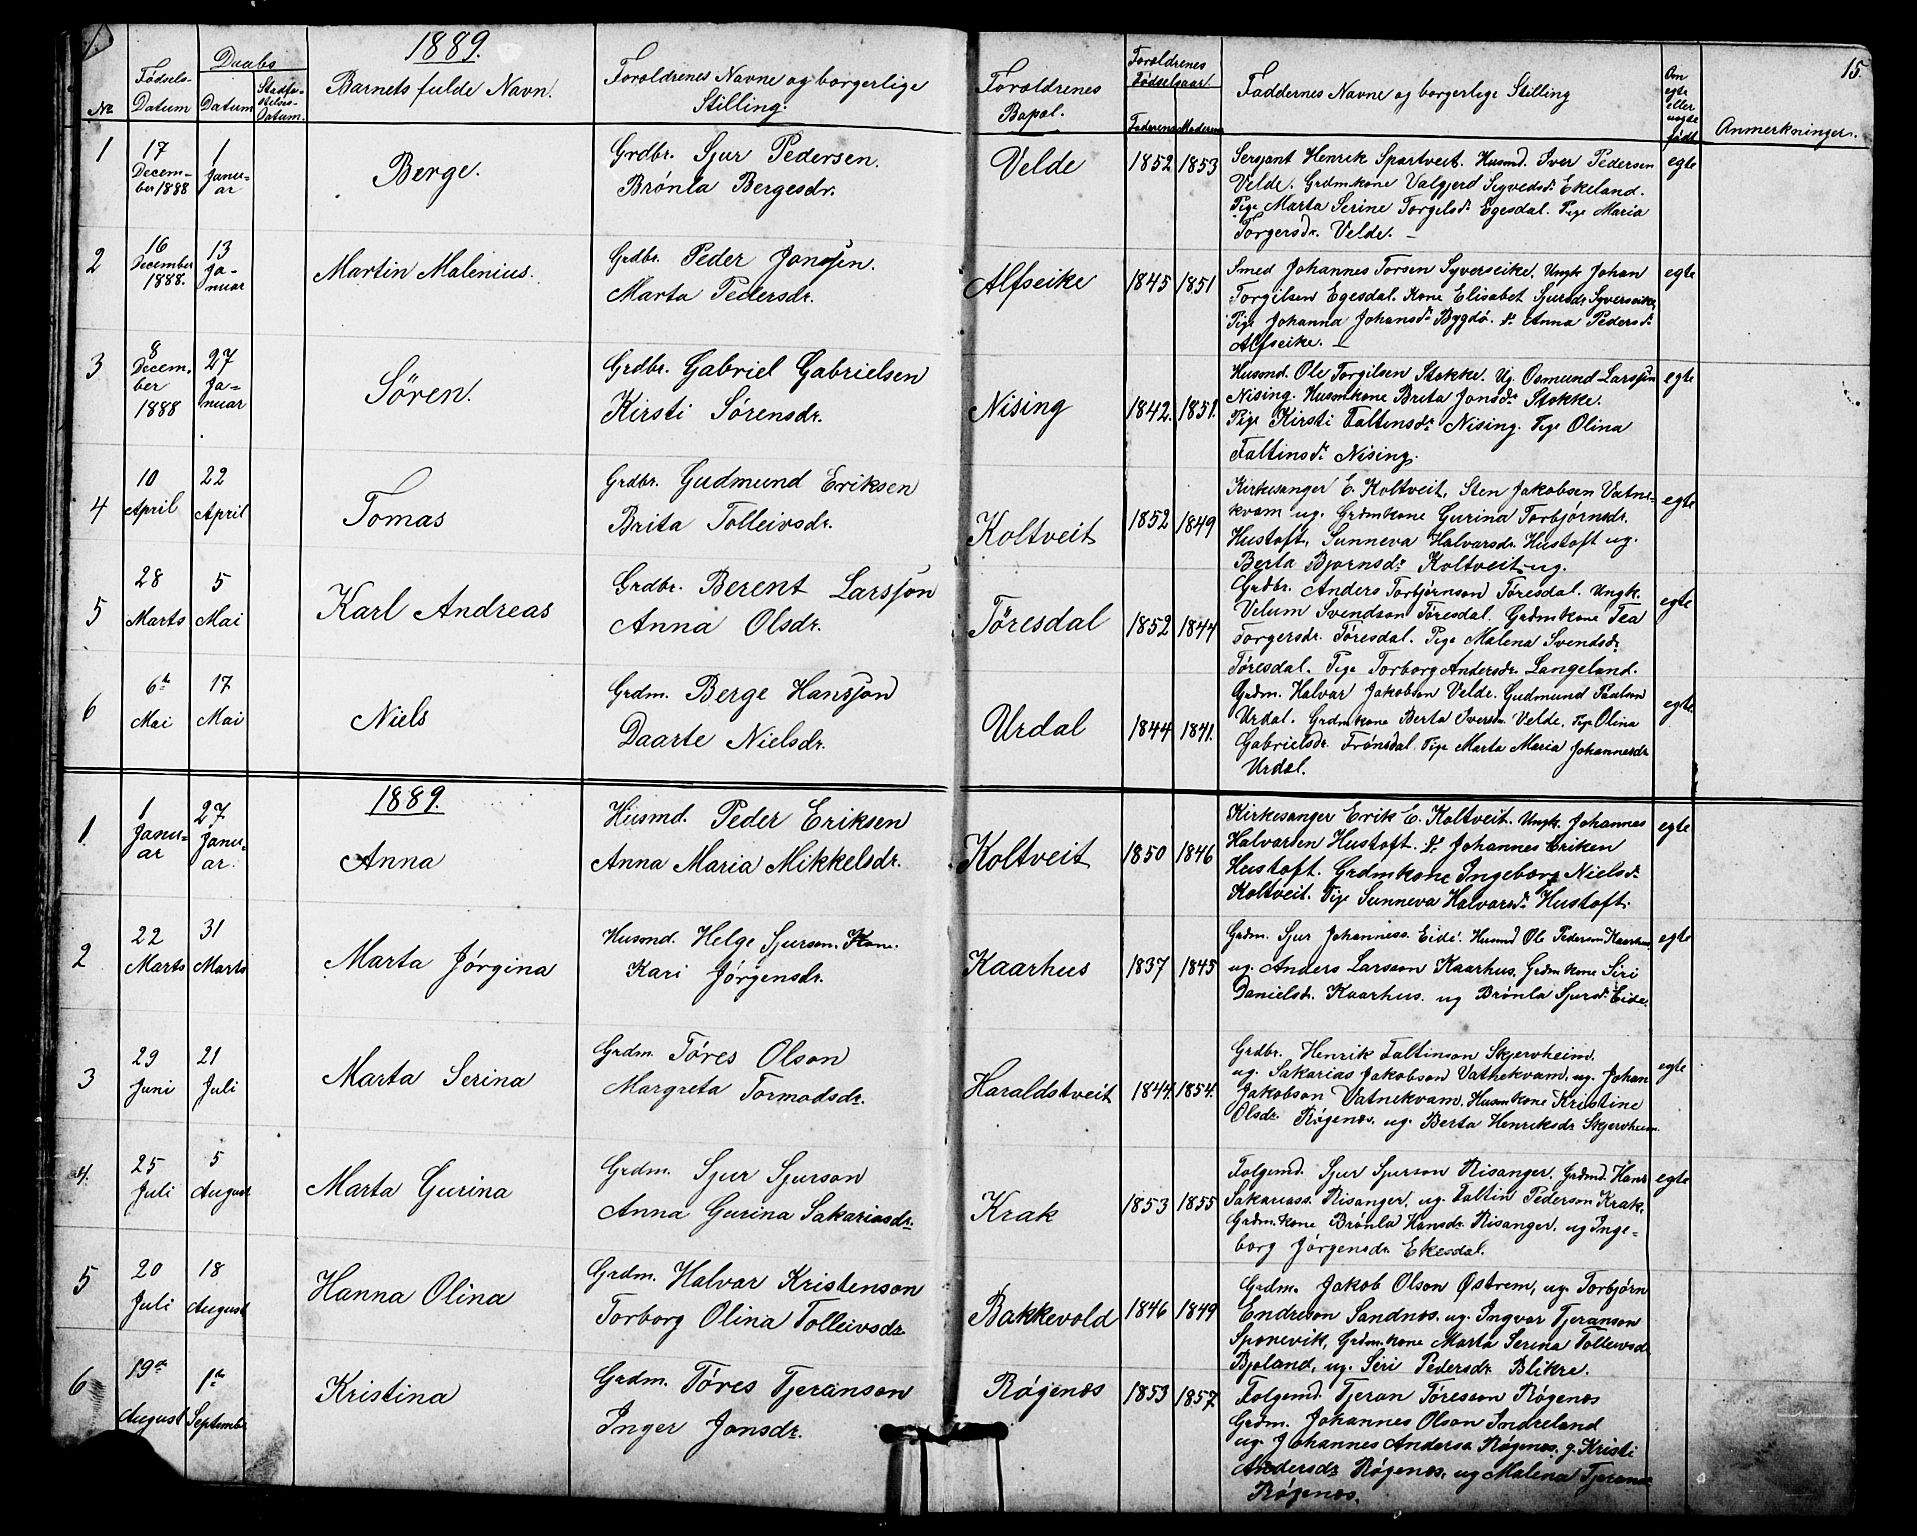 1889.
15.
No
Fødsels-
Datum
Daabs
Datum
Stadfæ-
stelses-
Datum.
Barnets fulde Navn.
Forældrenes Navne og borgerlige
Stilling.
Forældrenes
Bopæl.
Forældrenes
Fødselsaar.
Faderens Moderens
Faddernes Navne og borgerlige Stilling
Om
egte
eller
uegte
født
Anmerkninger.
1
17
Decem-
ber 1888
1
Janu-
ar
Berge.
Grdbr. Sjur Pedersen.
Brónla Bergesdr.
Velde
1852 1853
Sersjant Henrik Spartveit. Husmd. Iver Pedersen
Velde. Grdmkone Valgjerd Sigvedsdr. Ekeland.
Pige Marta Serine Torgilsdr. Egesdal. Pige Maria
Torgersdr. Velde. –
egte
2
16
December
1888.
13
Ja-
nuar
Martin Malenius.
Grdbr. Peder Jonssen.
Marta Pedersdr.
Alfseike
1845 1851
Smed Johannes Torsen Syverseike. Ungk. Johan
Torgilsen Egesdal. Kone Elisabet Sjursdr Syverseike,
Pige Johanna Johansdr. Bygdø. do. Anna Pedersdr.
Alfseike. –
egte
3
8
Decem-
ber
1888
27
Ja-
nuar
Sören.
Grdbr. Gabriel Gabrielsen
Kirsti Sørensdr.
Nising
1842. 1851.
Husmd. Ole Torgilsen Stokke. Ug. Osmund Larssen
Nising. Husmkone Brita Jonsdr. Stokke.
Pige Kirsti Faltinsdr. Nising. Pige Olina
Faltinsdr. Nising.
egte
4
10
April
22
April
Tomas
Grdbr. Gudmund Eriksen
Brita Tolleivsdr.
Koltveit
1852 1849
Kirkesanger E. Koltveit, Sten Jakobsen Vatne-
kvam ug. Grdmkone Gurina Torbjørnsdr.
Hustoft, Sunneva Halvarsdr. Hustoft ug.
Berta Bjørnsdr. Koltveit ug.
egte
5
28
Marts
5
Mai
Karl Andreas
Grdbr. Berent Larsson
Anna Olsdr.
Tøresdal
1852 1844
Grdbr. Anders Torbjørnson Tøresdal. Ungk.
Velum Svendson Tøresdal. Grdmkone Tea
Torgersdr. Tøresdal. Pige Malena Svendsdr.
Tøresdal. Pige Torborg Andersdr. Langeland.
egte
6
6te
Mai
17
Mai
Niels
Grdm. Berge Hansson
Daarte Nielsdr.
Urdal
1844 1841.
Grdm. Halvar Jakobson Velde. Gudmund Paulson
Urdal. Grdmkone Berta Iversdr. Velde. Pige Olina
Gabrielsdr. Frønsdal. Pige Marta Maria Johannesdr.
Urdal.
egte.
1889.
1.
1
Janu-
ar
27
Janu-
ar.
Anna
Husmd. Peder Eriksen
Anna Maria Mikkelsdr.
Koltveit
1850 1846
Kirkesanger Erik E. Koltveit. Ungk. Johannes
Halvarsen Hustoft. do. Johannes Eriken
Hustoft. Grdmkone Ingeborg Nielsdr.
Koltveit. Pige Sunneva Halvarsdr. Hustoft.
egte
2
22
Marts
31
Marts
Marta Jórgina
Husmd. Helge Sjurson. Kone.
Kari Jórgensdr.
Kaarhus
1837 1845
Grdm. Sjur Johanness. Eide. Husmd Ole Pederson Kaarhus
ug. Anders Larsson Kaarhus. Grdmkone Siri
Danielsdr. Kaarhus. ug Brónla Sjursdr. Eide.
egte
3
29
Juni
21
Juli
Marta Serina
Grdm. Tóres Olson
Margreta Tormodsdr.
Haraldstveit
1844. 1854.
Grdbr. Henrik Faltinson Skjervheim,
ug. Sakarias Jakobson Vathekvam. ug. Johan
Jakobson Vatnekvam. Husmkone Kristine
Olsdr. Røgenæs. ug. Berta Henriksdr Skjervheim.
egte
4.
25
Juli
5
August
Marta Gurina
Grdm. Sjur Sjurson
Anna Gurina Sakariasdr.
Krak
1853 1855
Folgemd. Sjur Sjurson Risanger. Grdmd. Hans
Sakariass. Risanger, ug. Faltin Pederson Krak.
Grdm.kone Brónla Hansdr. Risanger. ug Inge-
borg Jørgensdr. Ekesdal.
egte
5
20
Juli
18
August
Hanna Olina
Grdm. Halvar Kristenson
Torborg Olina Tolleivsdr.
Bakkevold
1846 1849
Grdm. Jakob Olson Østrem, ug. Torbjørn
Endreson Sandnæs. ug. Ingvar Tjeranson
Sponevik, Grdm.kone Marta Serina Tolleivsdr.
Bjoland, ug. Siri Pedersdr. Blikre.
6
19de
August
1ste
September
Kristina
Grdm. Tóres Tjeranson
Inger Jonsdr.
Røgenæs
1853 1857
Folgemd. Tjeran Tóresson Røgenæs
Grdm. Johannes Olson Indreland
ug. Johannes Anderss Røgenæs. g. Kristi
Andersdr Røgenæs. ug Malena Tjeransdr.
Røgenæs.